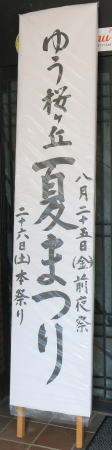 ゆう桜ヶ丘
夏まつり
八月二十五日(金)前夜祭
二十六日(土)本祭り